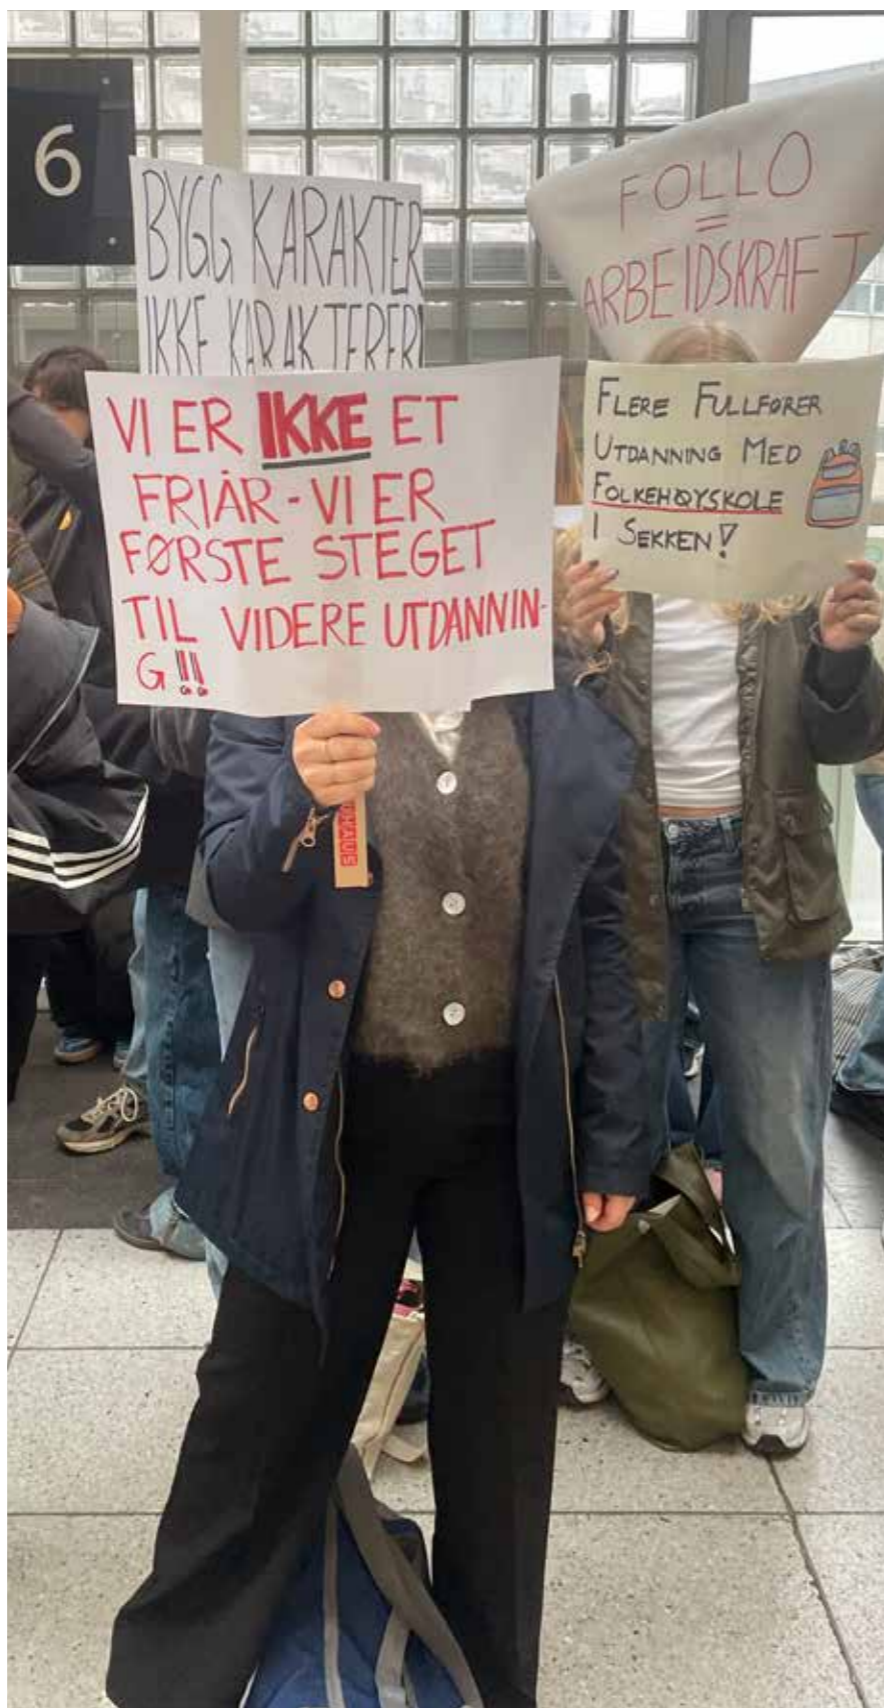 6
BYGG KARAKTER
IKKE KARAKTERER!
FOLLO
=
ARBEIDSKRAFT
VI ER IKKE ET
FRIÅR - VI ER
FØRSTE STEGET
TIL VIDERE UTDANNIN-
G!!
FLERE FULLFØRER
UTDANNING MED
FOLKEHØYSKOLE
I SEKKEN!